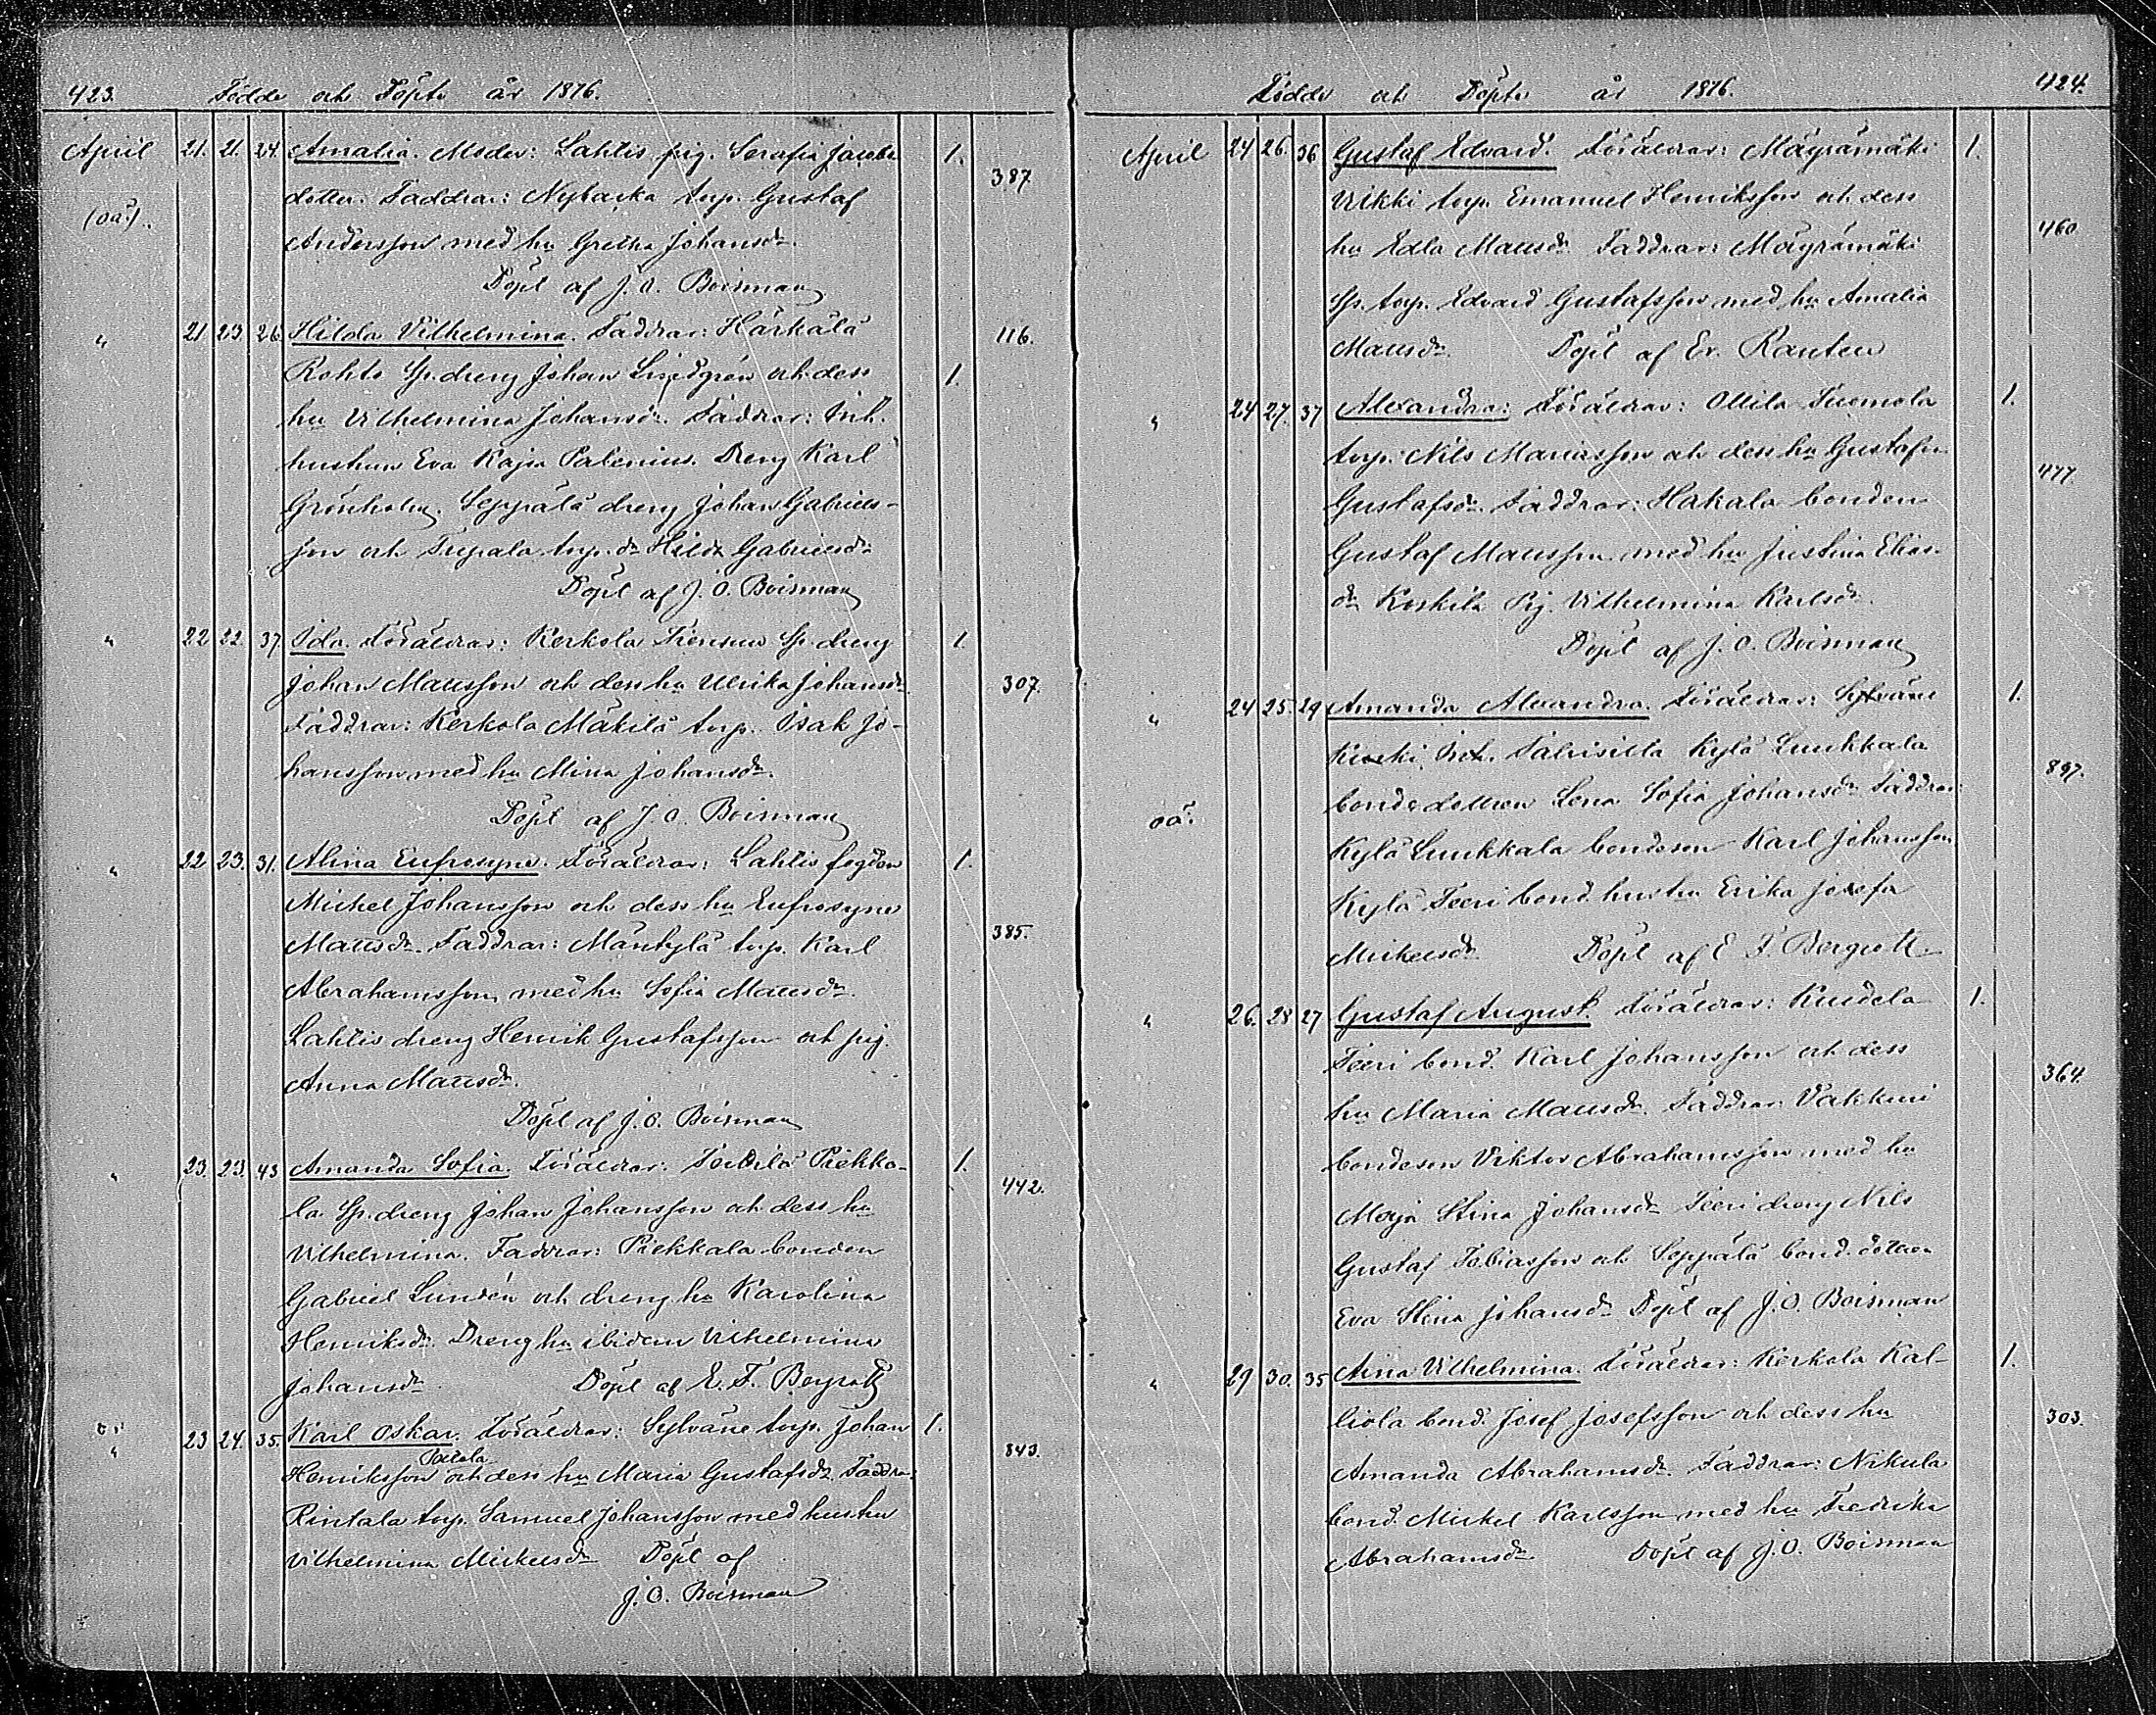 423. Födde och Döpte år 1876.
April 21. 21. 24. Amalia. Moder: Lahtis pig. Serafia Jacobs- 1.
dotter. Faddrar: Nybacka torp. Gustaf 387.
(oä.)
Andersson med hu Gretha Johansdr.
Döpt af J. O. Boisman
" 21 23. 26. Hilda Vilhelmina. Faddrar: Härkälä 116.
Rohto Sp. dreng Johan Lindgrén och dess 1.
hu Vilhelmina Johansdr. Faddrar: Inh.
hustrun Eva Kajsa Palenius. Dreng Karl
Grönholm. Seppälä dreng Johan Gabriels-
son och torp. dr Hilda Gabrielsdr
Döpt af J. O. Boisman
" 22 22. 37. Ida. Föräldrar: Kerkola Sp. dreng 1.
Johan Matsson och dess hu Ulrika Johansdr. 307.
Faddrar: Kerkola Mäkilä torp. Isak Jo-
hansson med hu Mina Johansdr.
Döpt af J. O. Boisman
" 22 23. 31. Alina Eufrosyne. Föräldrar: Lahtis fogden 1.
Michel Johansson och dess hu Eufrosyne
Matsdr. Faddrar: Mäntylä torp. Karl 385.
Abrahamsson med hu Sofia Matsdr.
Lahtis dreng Henrik Gustafsson och pig.
Anna Matsdr.
Döpt af J. O. Boisman
" 23. 23. 43 Amanda Sofia. Föräldrar: Piekka- 1.
la Sp. dreng Johan Johansson och dess hu 442.
Vilhelmina. Faddrar: Piekkala bonden
Gabriel Lundén och dreng hu Karolina
Henriksdr. Dreng hu ibidem Vilhelmina
Johansdr. Döpt af E. F. Bergrott
" 23 24. 35. Karl Oskar. Föräldrar: Sylväne torp. Johan 1.
Henriksson och dess hu Maria Gustafsdr. Faddrar: 843.
Rintala torp. Samuel Johansson med hustru
Vilhelmina Mickelsdr Döpt af
J. O. Boisman
Födde och Döpte år 1876. 424.
April 24 26. 36 Gustaf Edvard. Föräldrar: Mäyrämäki 1.
Uikki torp. Emanuel Henriksson och dess
hu Edla Matsdr. Faddrar: Mäyrämäki 460.
Sp. torp. Edvard Gustafsson med hu Amalia
Matsdr. Döpt af Er. Rauten
" 24 27. 37 Alexandra: Föräldrar: Ollila Tuomola 1.
torp. Nils Mariasson och dess hu Gustafva
Gustafsdr. Faddrar: Hakala bonden 477.
Gustaf Matsson med hu Justina Elias-
dr Koskila Pig. Vilhelmina Karlsdr.
Döpt af J. O. Boisman
" 24 25. 29 Amanda Alexandra. Föräldrar: Sylväne 1.
Inh. Kylä Luukkala 897.
bondedottren Lena Sofia Johansdr. Faddrar:
oä.
Kylä Luukkala bondeson Karl Johansson
Kylä Teeri bond. hustru Erika Josefa
Mickelsdr. Döpt af E. F. Bergrott
" 26. 28 27 Gustaf August. Föräldrar: Kuudela 1.
Teeri bond. Karl Johansson och dess
hu Maria Matsdr. Faddrar: Vakkuri 364.
bondeson Viktor Abrahamsson med hu
Maja Stina Johansdr. Teeri dreng Nils
Gustaf Tobiasson och Seppälä bond. dotter
Eva Stina Johansdr. Döpt af J. O. Boisman
" 29 30. 35 Aina Vilhelmina. Föräldrar: Kerkola Kal- 1.
liola bond. Josef Josefsson och dess hu 303.
Amanda Abrahamsdr. Faddrar: Nikula
bond. Mickel Karlsson med hu Fredrika
Abrahamsdr. Döpt af J. O. Boisman